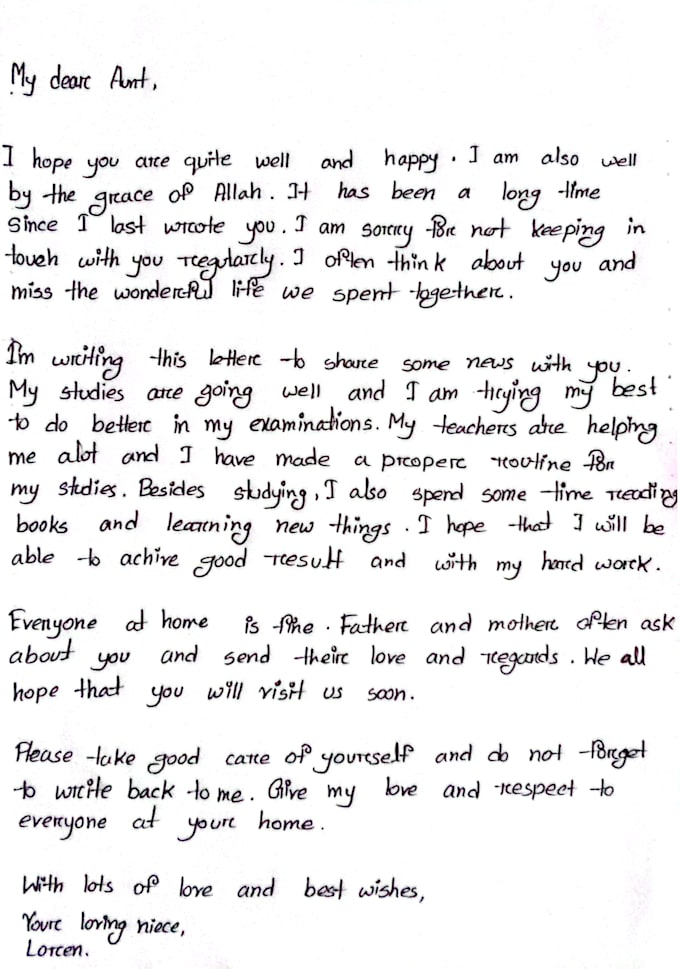 My dear Aunt,
I hope you are quite well and happy. I am also well
by the grace of Allah. It has been a long time
since I last wrote you. I am sorry for not keeping in
touch with you regularly. I often think about you and
miss the wonderful life we spent together.
I'm writing this letter to share some news with you.
My studies are going well and I am trying my best
to do better in my examinations. My teachers are helping
me alot and I have made a proper routine for
my studies. Besides studying, I also spend some time reading
books and learning new things. I hope that I will be
able to achive good result and with my hard work.
Everyone at home is fine. Father and mother often ask
about you and send their love and regards. We all
hope that you will visit us soon.
Please take good care of yourself and do not forget
to write back to me. Give my love and respect to
everyone at your home.
With lots of love and best wishes,
Your loving niece,
Loren.